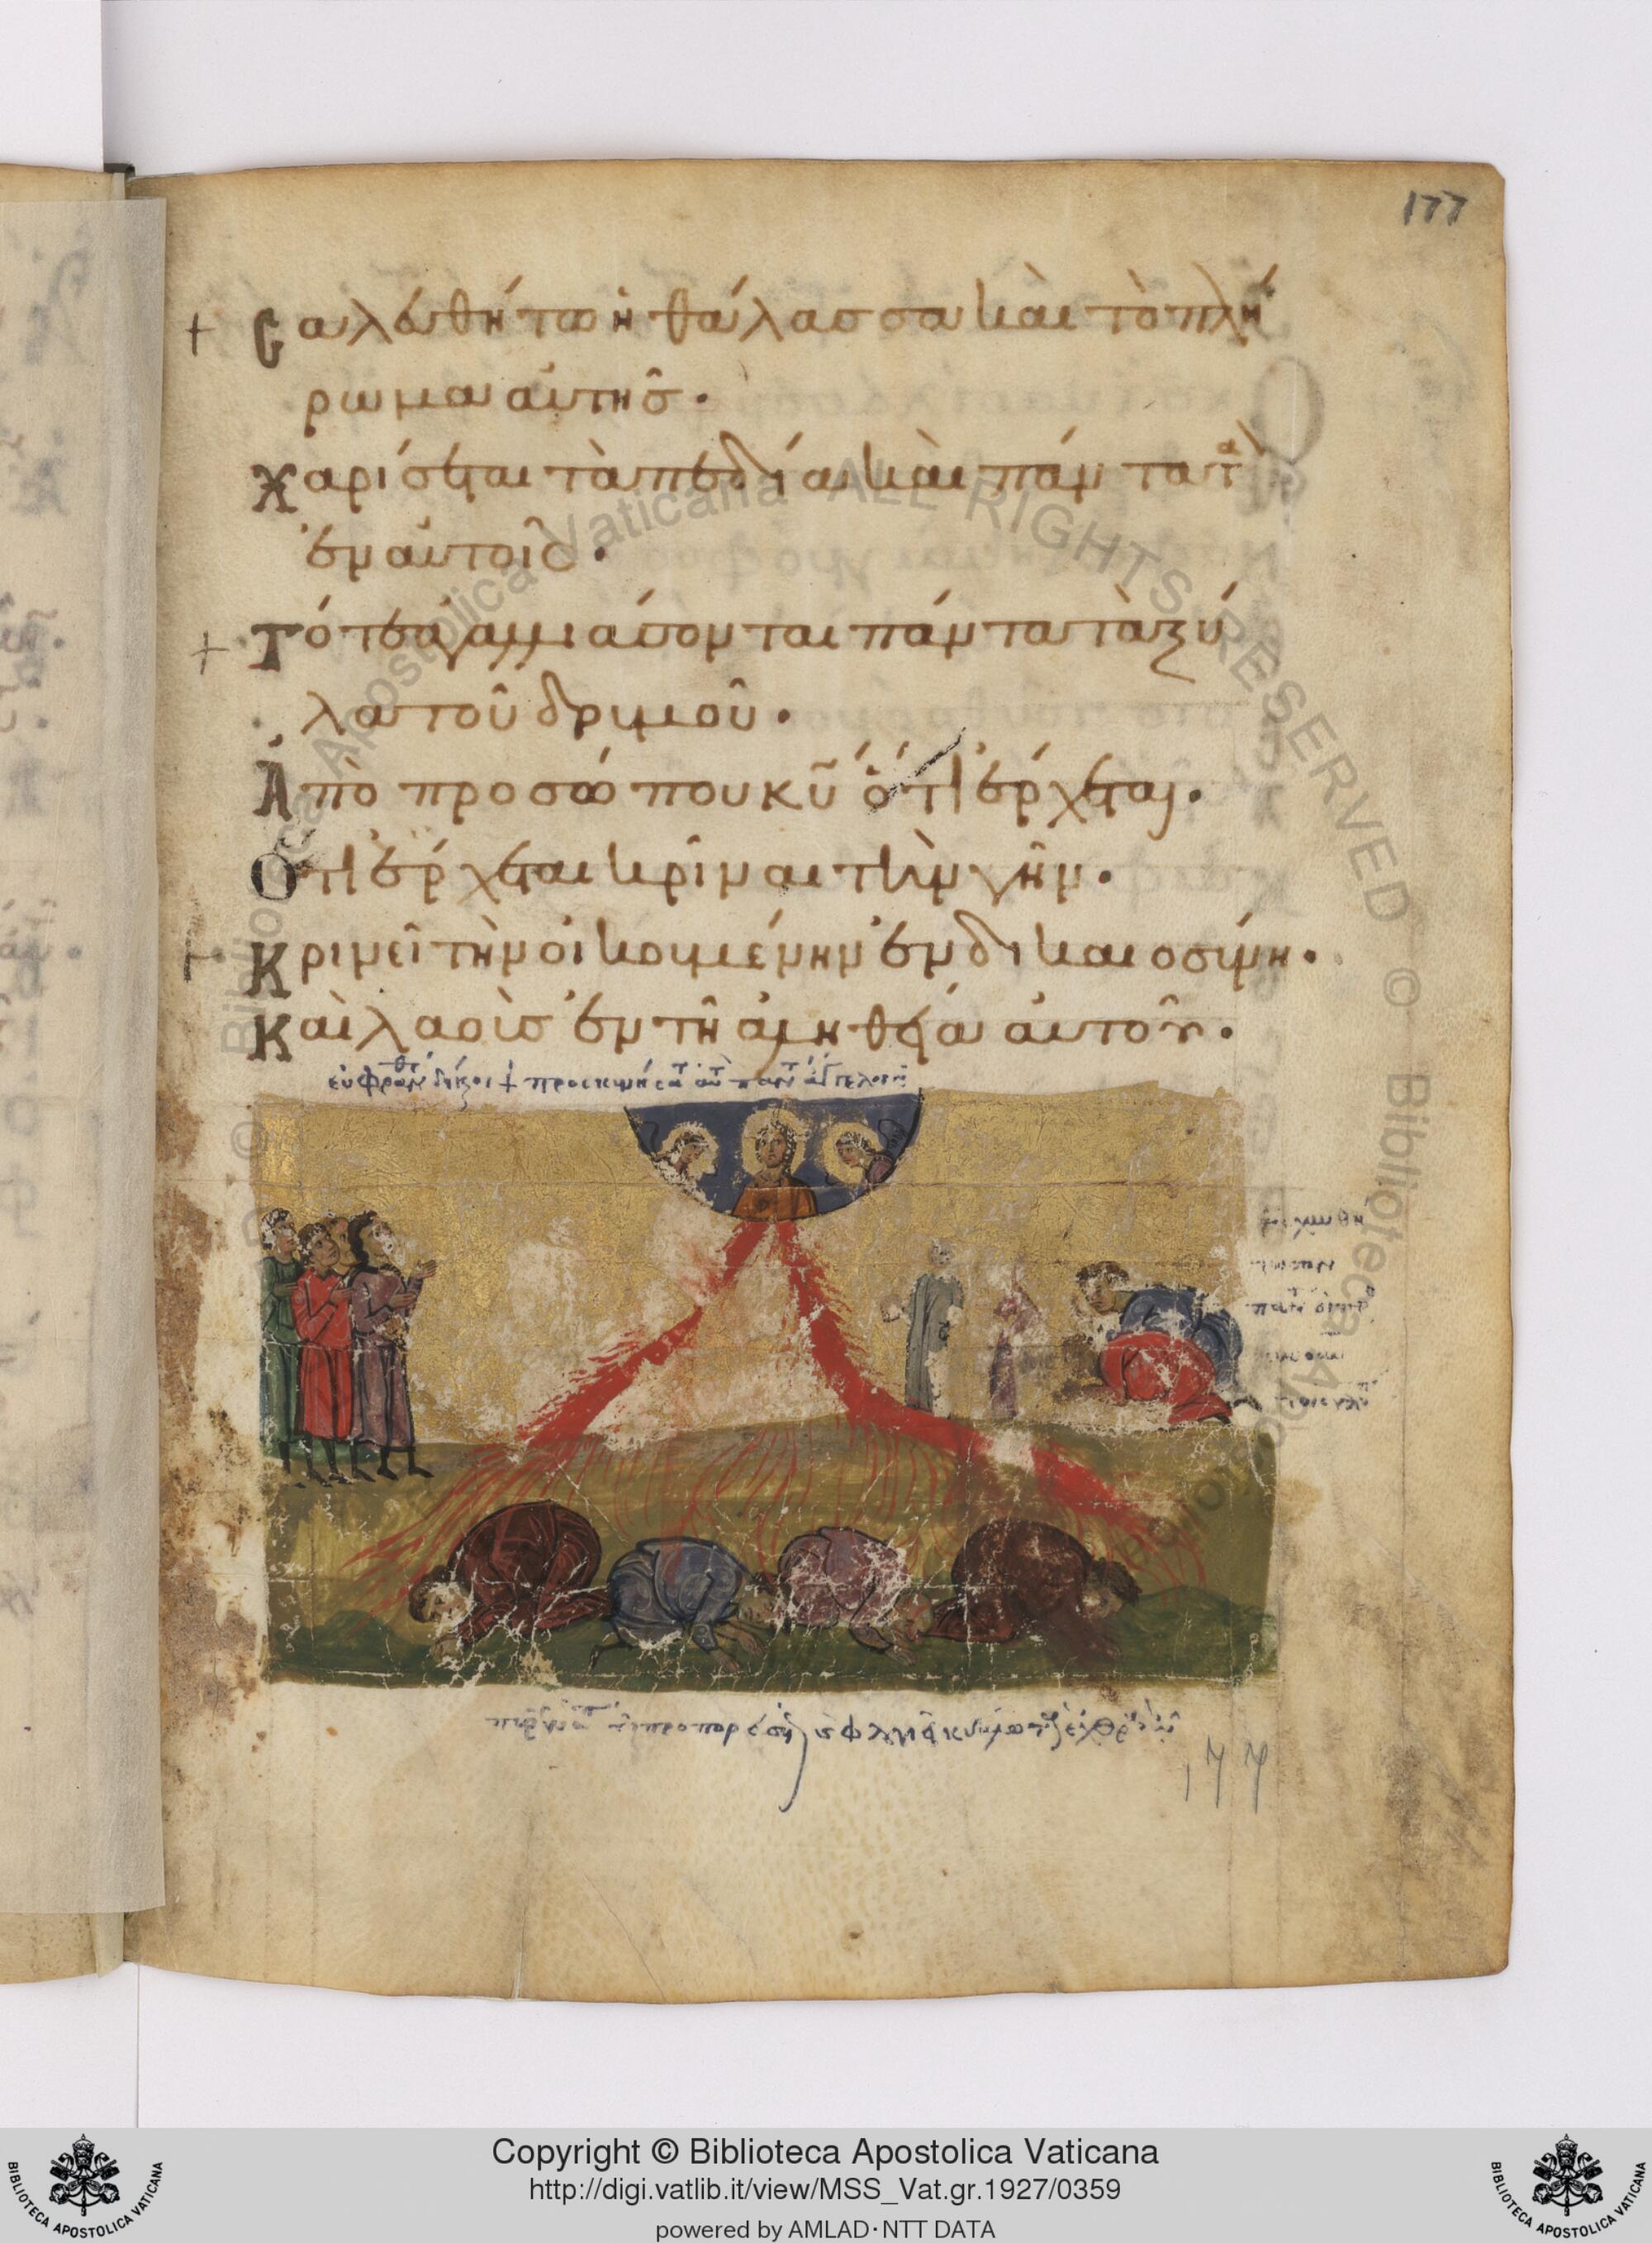 177
Σαλευθήτω ἡ θάλασσα καὶ τὸ πλή
ρωμα αὐτῆς·
χαρίσεται τὰ πεδία καὶ πάντα τὰ
ἐν αὐτοῖς·
Τότε ἀγαλλιάσονται πάντα τὰ ξύ
λα τοῦ δρυμοῦ·
Ἀπὸ προσώπου κῡ ὅτι ἔρχεται·
Ὅτι ἔρχεται κρῖναι τὴν γῆν·
Κρινεῖ τὴν οἰκουμένην ἐν δικαιοσύνη·
Καὶ λαοὺς ἐν τῆ ἀληθεία αὐτοῦ·
177
Copyright © Biblioteca Apostolica Vaticana
http://digi.vatlib.it/view/MSS_Vat.gr.1927/0359
powered by AMLAD·NTT DATA
BIBLIOTECA APOSTOLICA VATICANA
BIBLIOTECA APOSTOLICA VATICANA